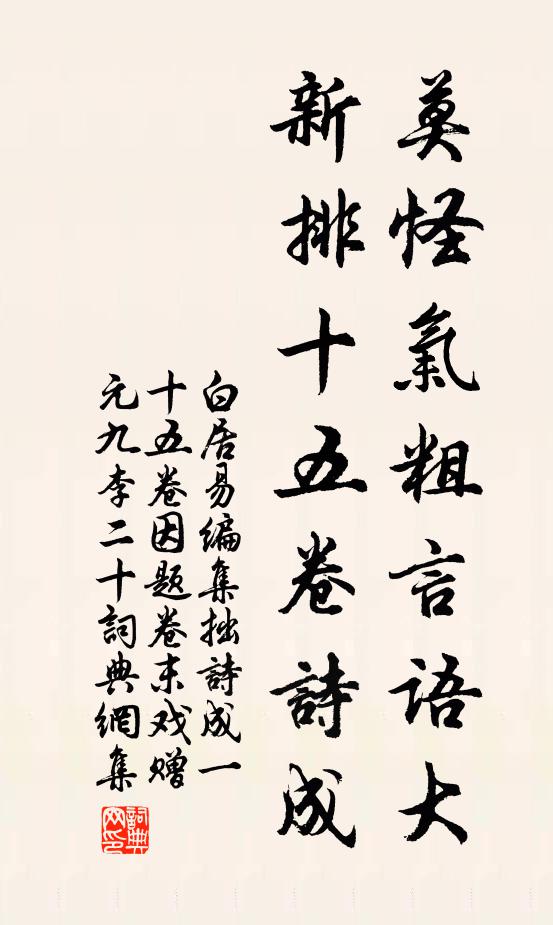 莫怪氣粗言語大
新排十五卷詩成
白居易編集拙詩成一
十五卷因題卷末戏赠
元九李二十詞典網集
詞典
网印